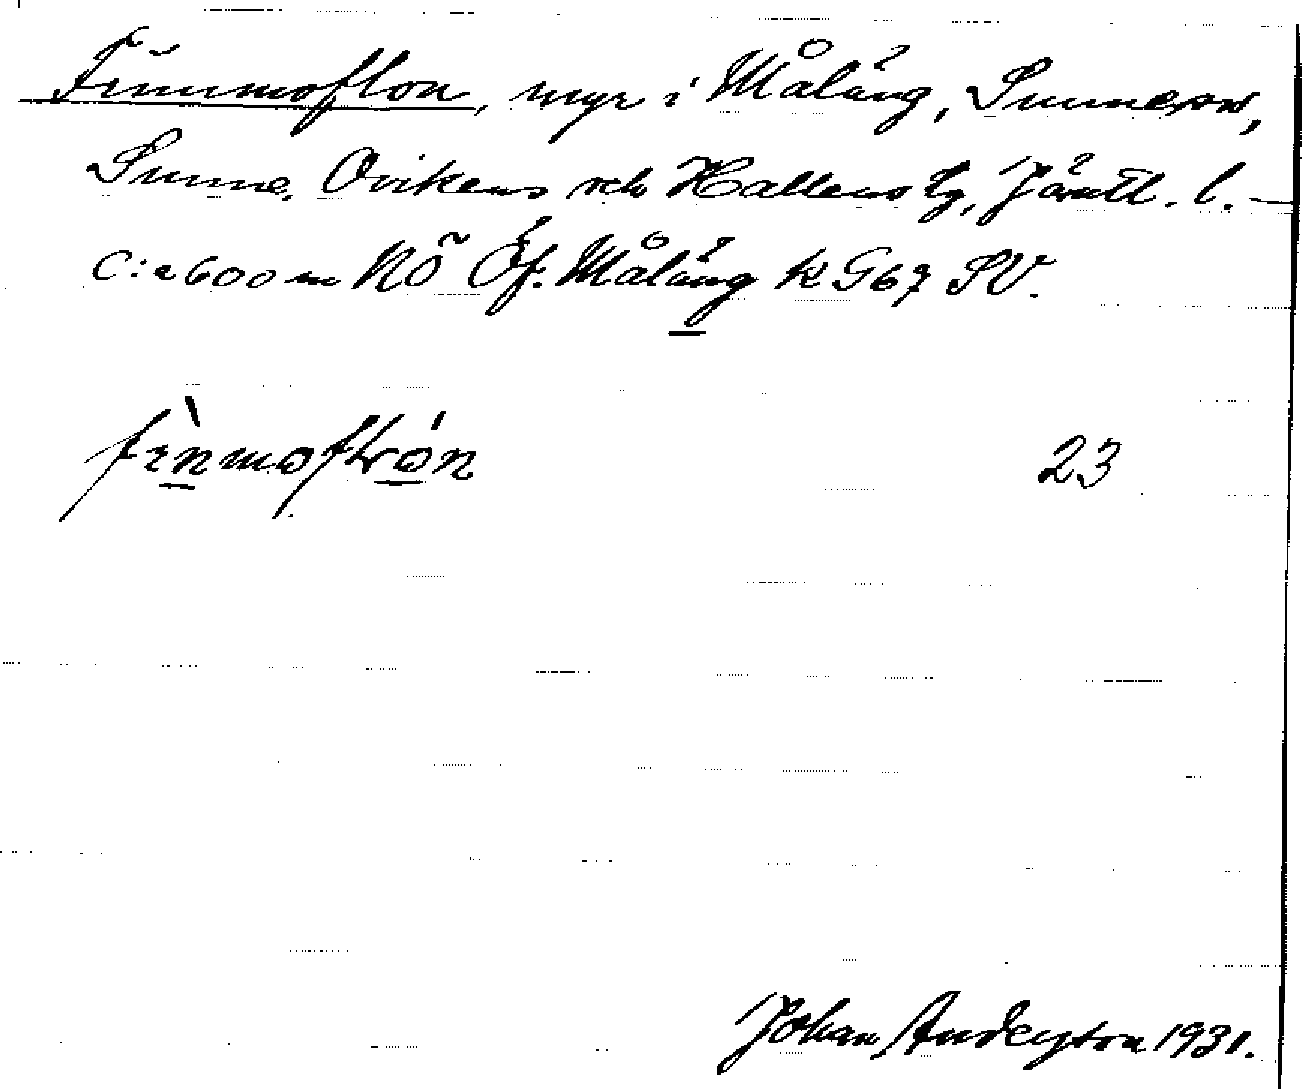 Finnmoflon, myr i Målång, Sunne sn,
Sunne, Ovikens och Hallens tg, Jämtl. l. —
C:a 600 m NÖ Öf. Målång k G67 SV.
fìnmoflón 23
Johan Anderstra 1931.